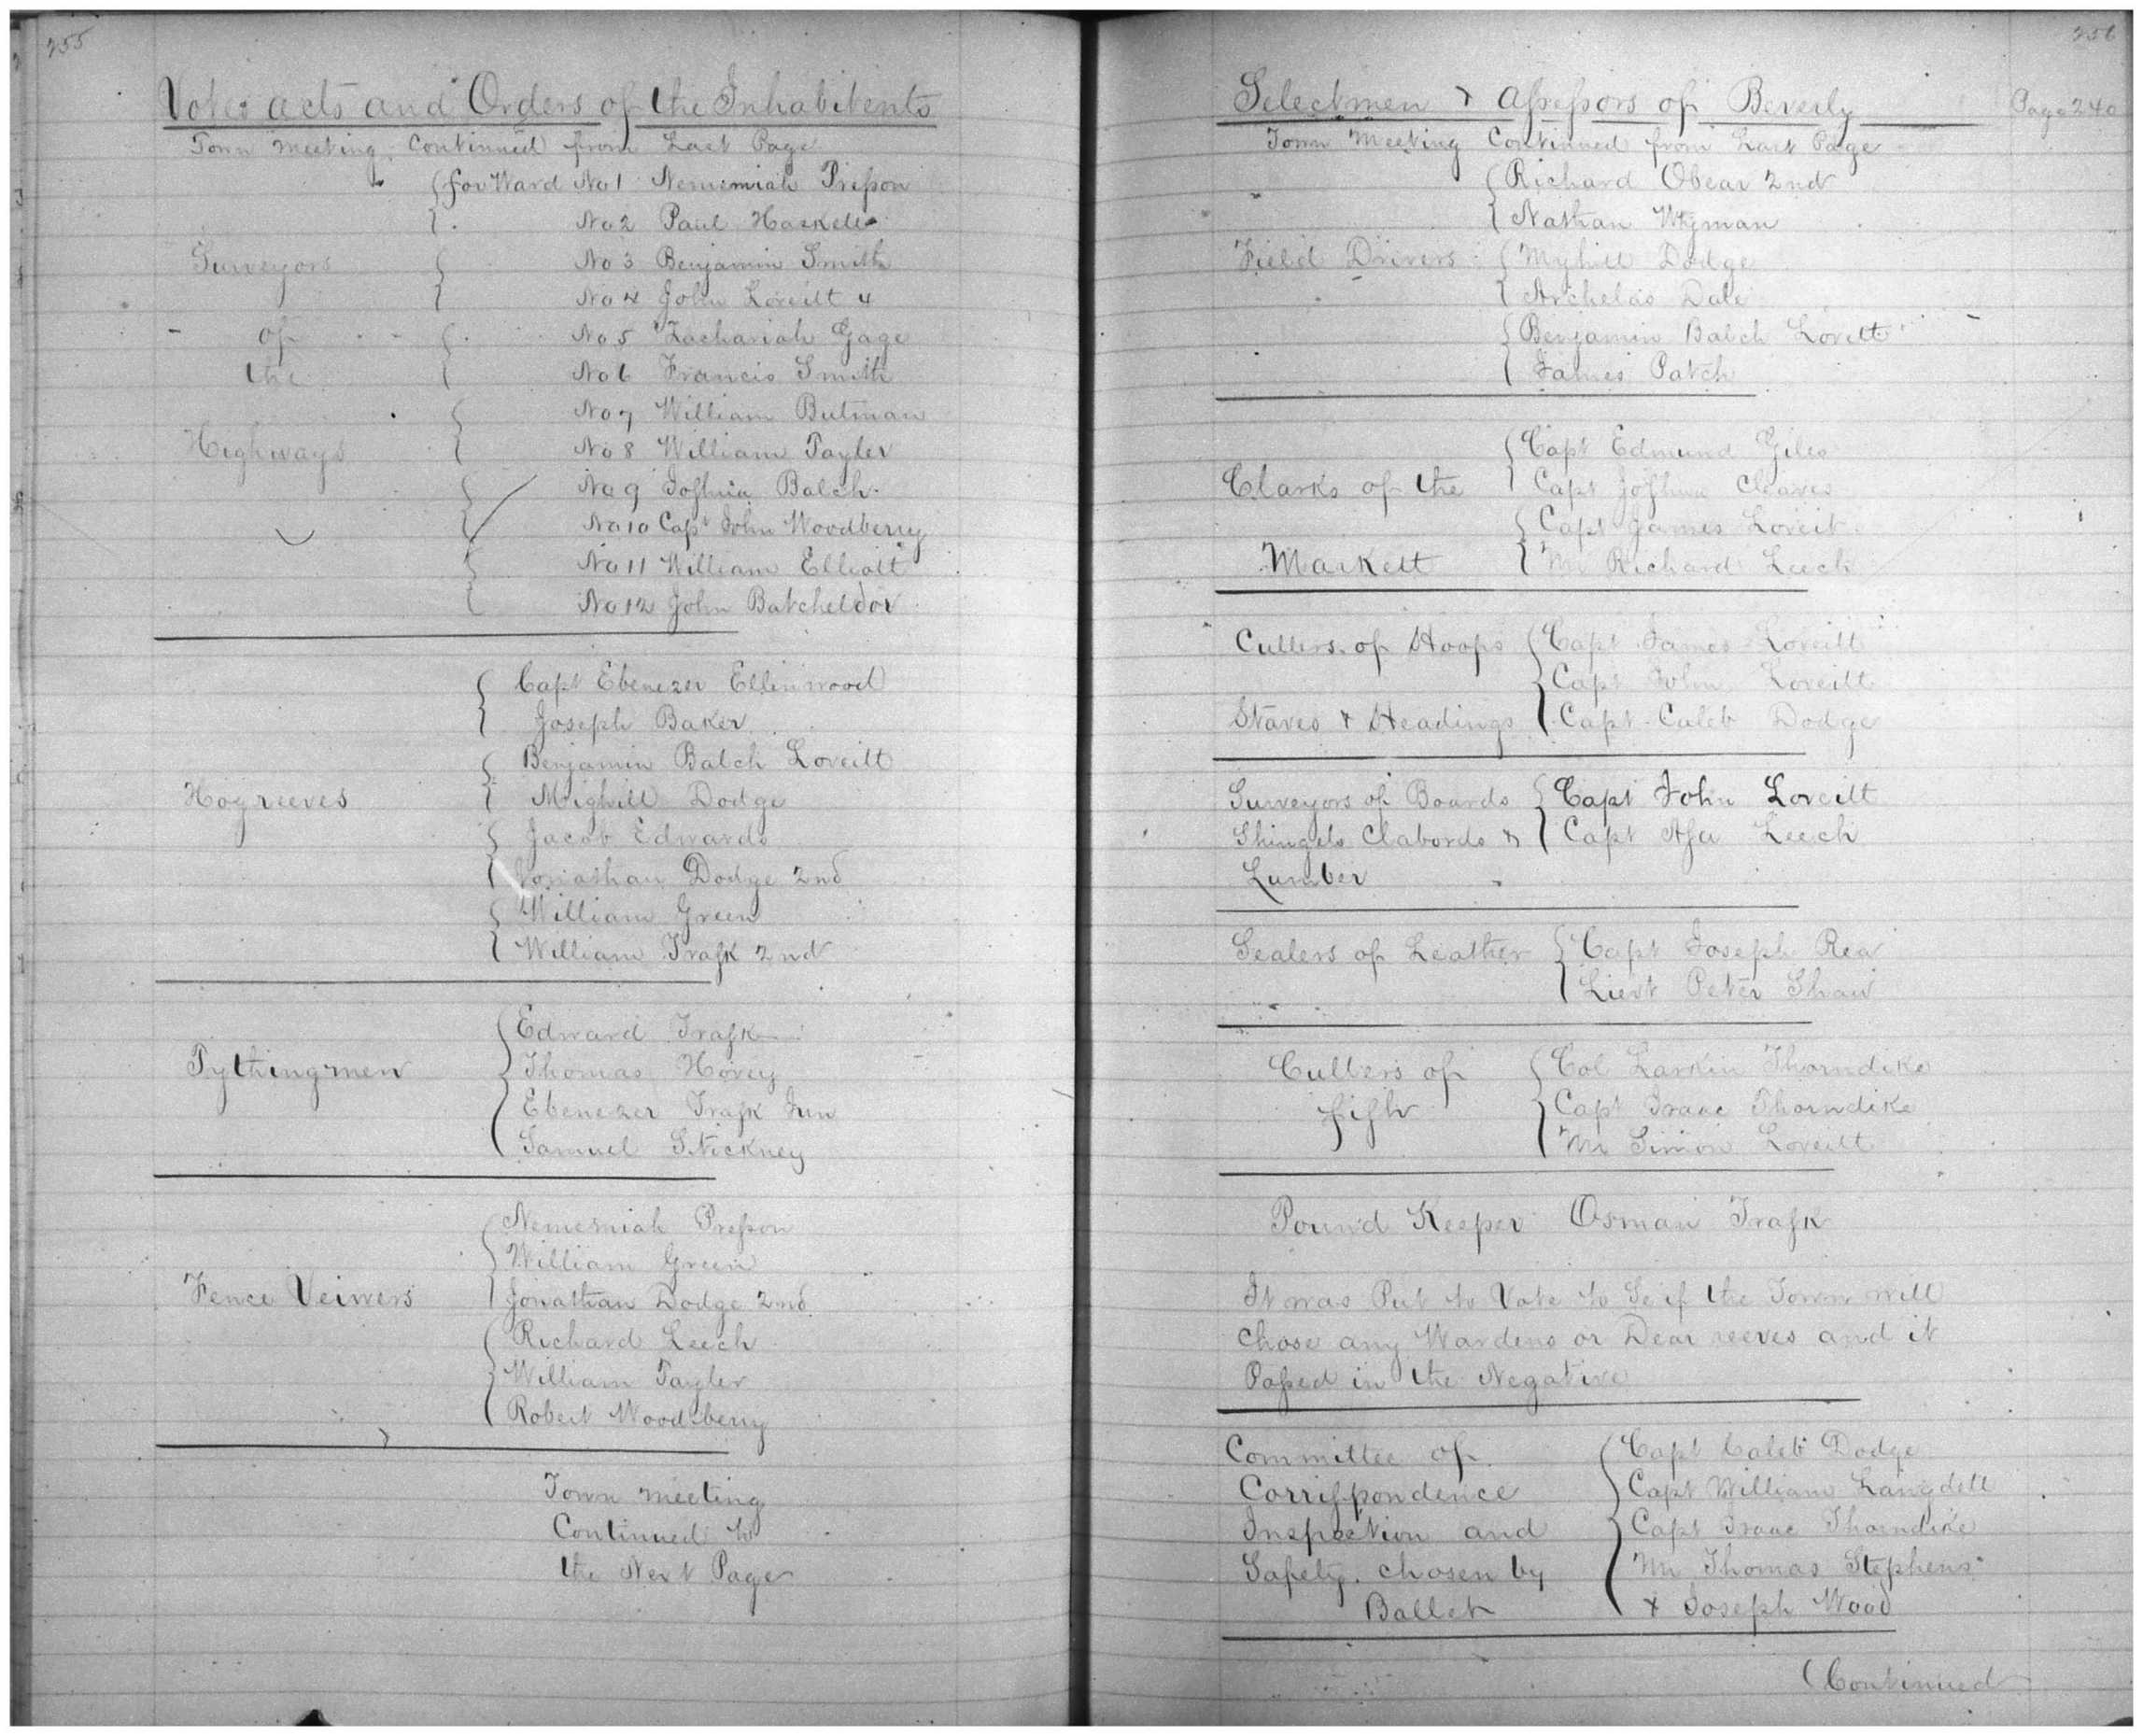 255
Votes acts and Orders of the Inhabitents
Town meeting Continued from Last Page
for Ward No 1 Nemimiah Preſson
No 2 Paul Haskell
Surveyors No 3 Benjamin Smith
No 4 John Loveitt 4
of No 5 Zachariah Gage
the No 6 Francis Smith
No 7 William Butman
Highways No 8 William Tayler
No 9 Joſhua Balch
No 10 Capt John Woodberry
No 11 William Elliott
No 12 John Batcheldor
Capt Ebenezer Ellinwood
Joseph Baker
Benjamin Balch Loveitt
Hogreeves Mighill Dodge
Jacob Edwards
Jonathan Dodge 2nd
William Green
William Traſk 2nd
Edward Traſk
Tythingmen Thomas Hovey
Ebenezer Traſk Jun
Samuel Stickney
Nememiah Preſson
William Green
Fence Veiwers Jonathan Dodge 2nd
Richard Leech
William Tayler
Robert Woodberry
Town meeting
Continued to
the Next Page
256
Selectmen & Aſseſsors of Beverly Page 240
Town Meeting Continued from Last Page
Richard Obear 2nd
Nathan Wyman
Field Drivers Myhill Dodge
Archelas Dale
Benjamin Balch Lovett
James Patch
Capt Edmund Giles
Clarks of the Capt Joſhua Cleaves
Capt James Loveit
Markett Mr Richard Leech
Cullers of Hoops Capt James Loveitt
Capt John Loveitt
Staves & Headings Capt Caleb Dodge
Surveyors of Boards Capt John Loveitt
Shingels Clabords & Capt Aſa Leech
Lumber
Sealers of Leather Capt Joseph Rea
Lievt Peter Shaw
Cullers of Col Larkin Thorndike
fiſh Capt Isaac Thorndike
Mr Simon Loveitt
Pound Keeper Osman Traſk
It was Put to Vote to Se if the Town will
chose any Wardens or Dear reeves and it
Paſsed in the Negative
Committee of Capt Caleb Dodge
Corriſpondence Capt William Langdell
Inspection and Capt Isaac Thorndike
Safety chosen by Mr Thomas Stephens
Ballet & Joseph Wood
(Continued